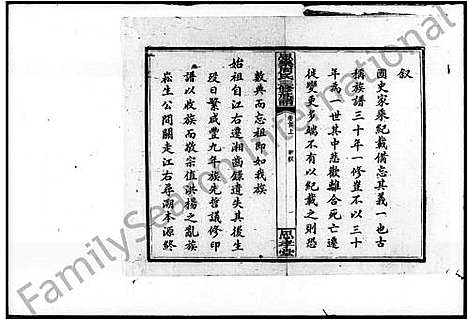 叙
國史家乘紀載備忘其義一也古
稱族譜三十年一修豈不以三十
年爲一世其中悲歡離合死亡遷
徙變更多端不有以紀載之則恐
卷首上 新叙
思孝堂
數典而忘祖即如我族
始祖自江右遷湘齒錄遺失其後生
歿日繁咸豐九年族先哲議修印
譜以收族而敬宗值洪楊之亂族
嵩生公間關走江右尋溯本源終
FamilySearch International